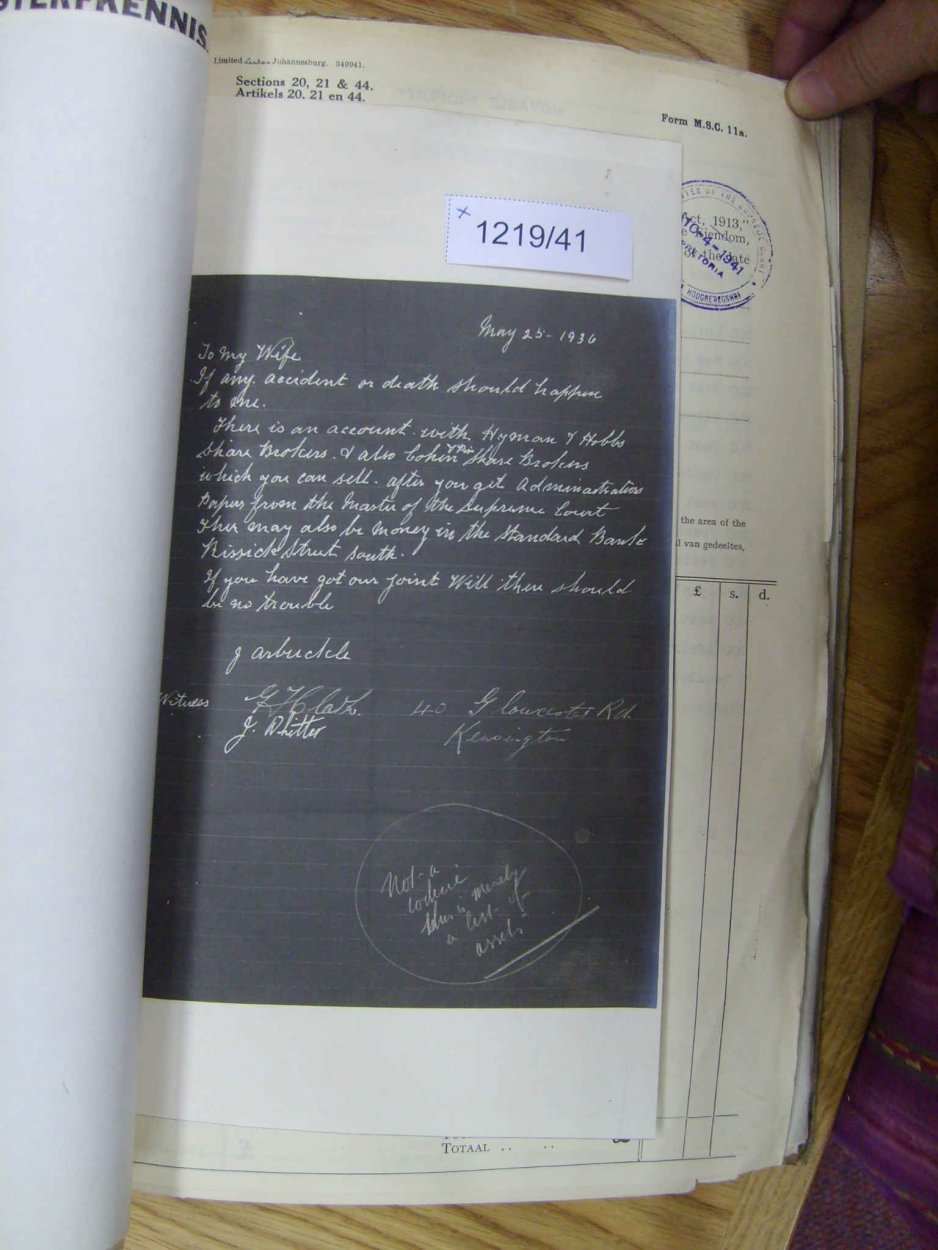 STERFKENNIS.
Limited London Johannesburg. 349941.
Sections 20, 21 & 44.
Artikels 20. 21 en 44.
Form M.S.C. 11a.
1219/41
ct, 1913,"
Eiendom,
of the late
10-4-1941
PRETORIA
HOOGGEREGSHOF
May 25 - 1936
To My Wife
If any accident or death should happen
to me.
There is an account with Hyman & Hobbs
Share Brokers. & also Cohen Share Brokers
which you can sell. after you get Administration
Papers from the Master of the Supreme Court
Ther may also be money in the Standard Bank
Rissick Street South.
If you have got our joint Will there should
be no trouble
J Arbuckle
Witness
40 Gloucester Rd
J. Whitter
Kensington
Not a
codicil
this is merely
a list of
assets
the area of the
l van gedeeltes,
£ s. d.
TOTAAL .. ..